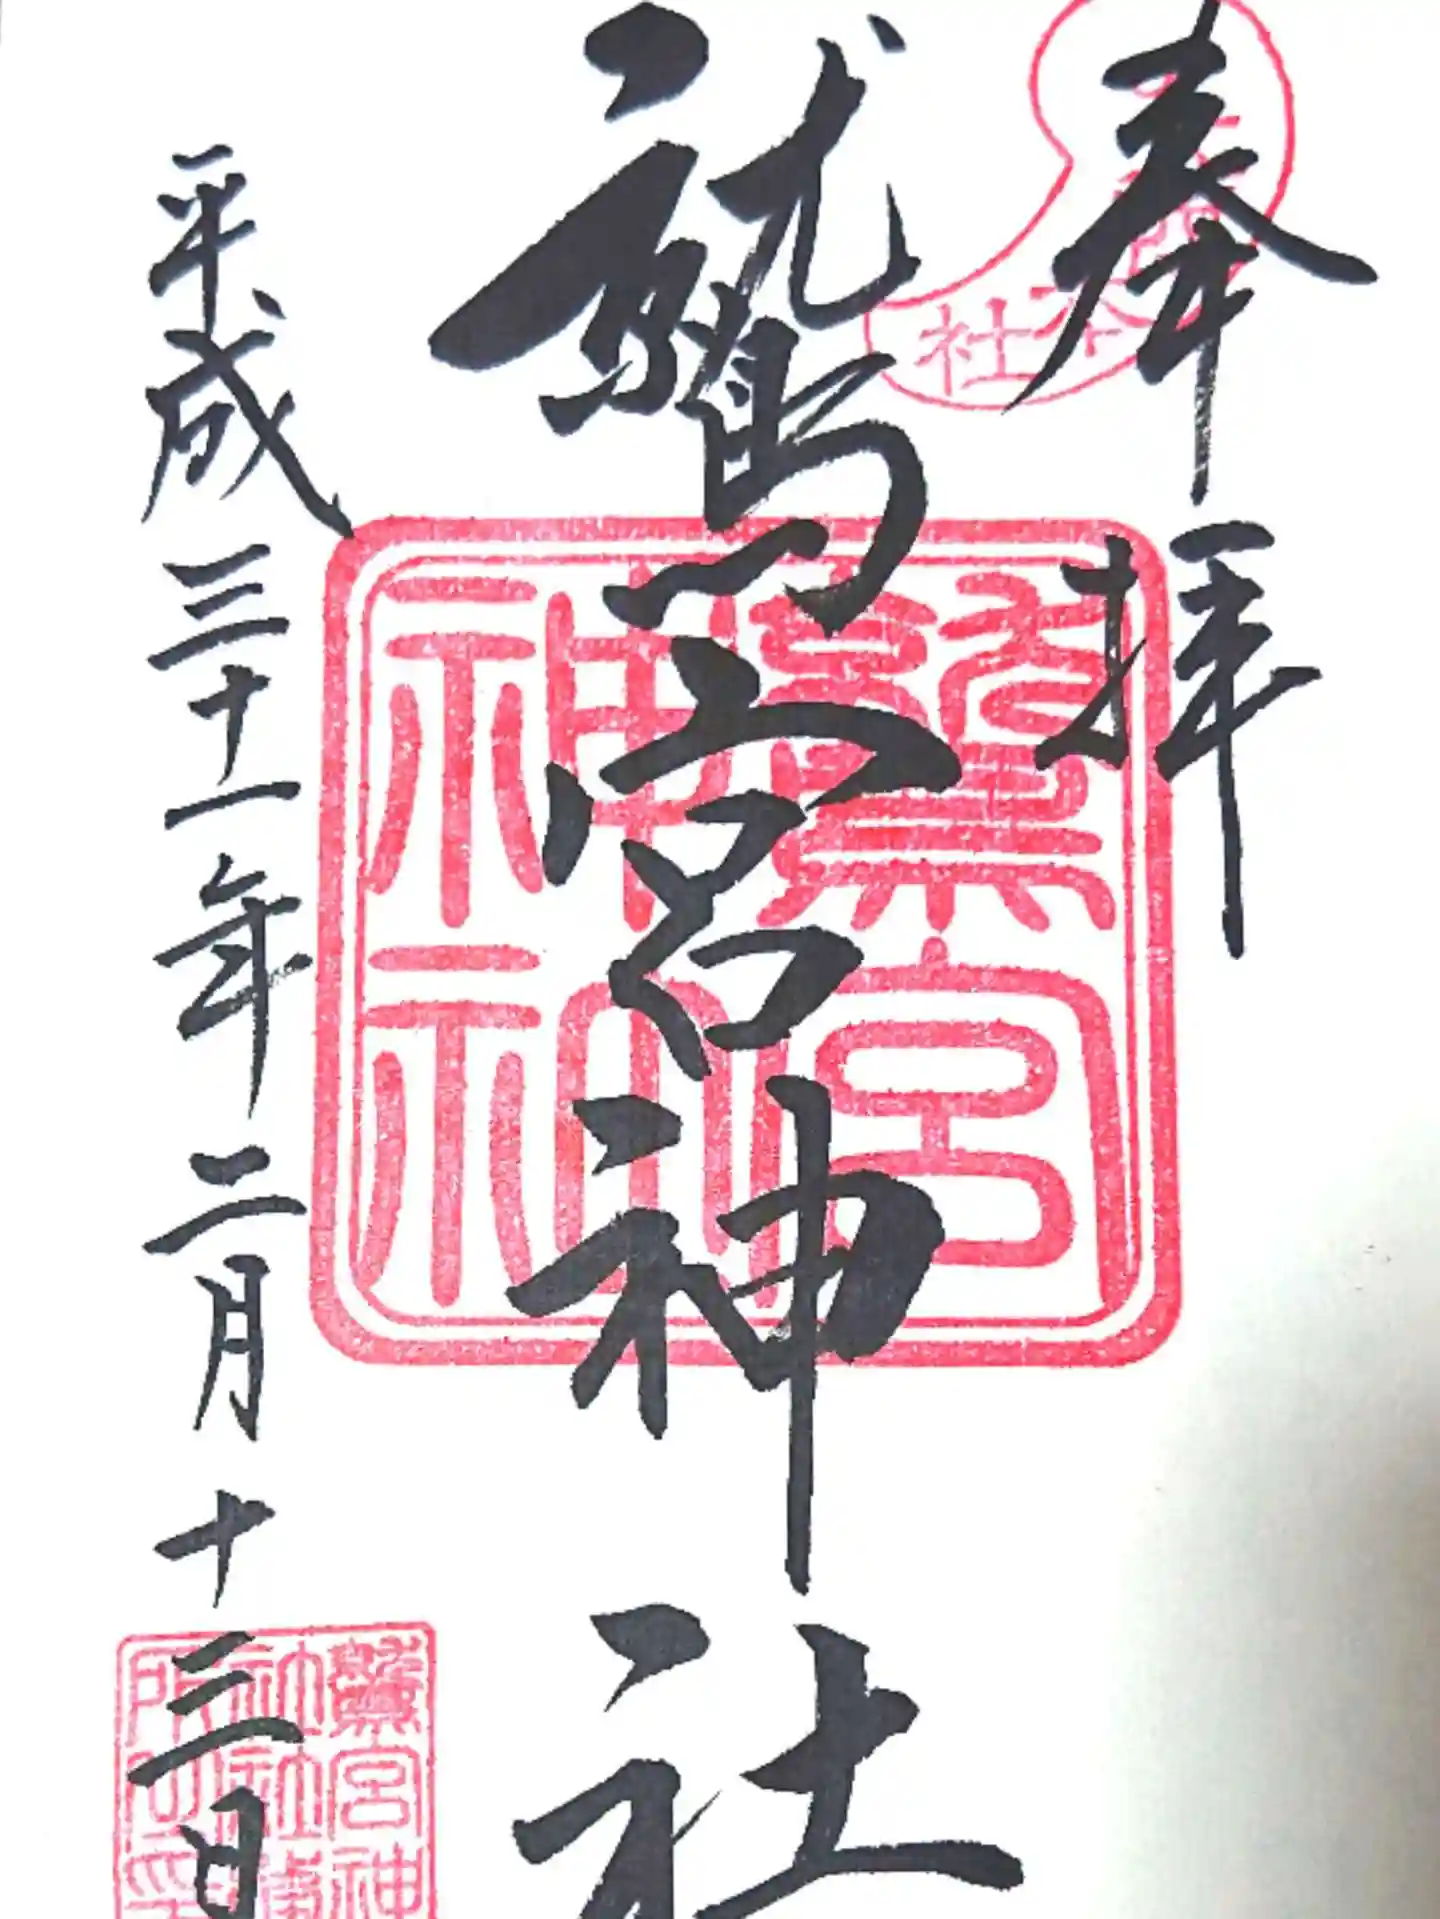 奉拝
本社
鷲宮神社
鷲宮
神
平成三十一年二月十三日
鷲宮神
社社務
所之印